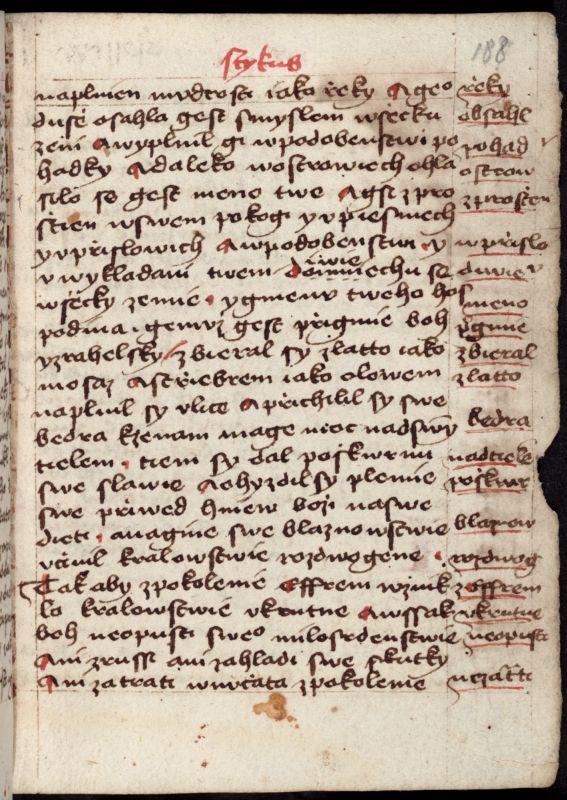 stykus
188
naplnien mudrosti iako rzeky A geo
dusse osahla gest smyslem wssecku
zemi A wyplnil gi w podobenstwi po
hadky A daleko w ostrowiech ohla
silo se gest meno twe A gst z pro
stien w swem pokogi y w piesniech
y w przislowich A w podobenstwi y
v wykladani twem diwiechu se
wssecky zemie y gmenu tweho hos
podina genuz gest przigmie boh
yzrahelsky zbieral sy zlatto iako
mosaz A strziebrem iako olowem
naplnil sy vlite A przichilil sy swe
bedra kzenam mage moc nad swym
tielem tiem sy dal poskwrnu
swe slawie A ohyzdil sy plemie
swe priwed hniew bozi na swe
dieti A nagine swe blaznowstwie
vczinil kralowstwie rozdwogene
Tak aby z pokolenie Effrem wznik
lo kralowstwie vkrutne A wssak
boh neopusti sweo milosrdenstwie
Ani zrussi ani zahladi swe skutky
Ani zatrati wnuczata z pokolenie
rzeky
obsahl
pohad
ostrow
zprostien
w przislo
diwie
meno
przigmie
zbieral
zlatto
bedra
nad tiele
poskwr
blaznow
rozdwog
z effrem
vkrutne
neopusti
nezatti